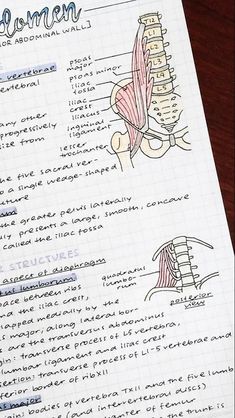 domen
IOR ABDOMINAL WALL]
T12
L1
L2
L3
L4
L5
vertebrae
vertebral
psoas
major
psoas minor
iliac
fossa
iliac
crest
iliacus
inguinal
ligament
lesser
trochanter
any other
progressively
size from
the five sacral ver-
o a single wedge-shaped
the greater pelvis laterally
presents a large, smooth, concave
called the iliac fossa
STRUCTURES
aspect of diaphragm
tus lumborum
pace between ribs
the iliac crest,
lapped medially by the
major; along lateral bor-
are the transversus abdominus
gin: transverse process of L5 vertebra,
lumbar ligament and iliac crest
sertion: transverse process of L1-5 vertebrae and
ferior border of rib XII
quadratus
lumbo-
rum
posterior
view
as major
odies of vertebra TXII and the five lumb
(and intervertebral discs)
anter of femur
the trunk is